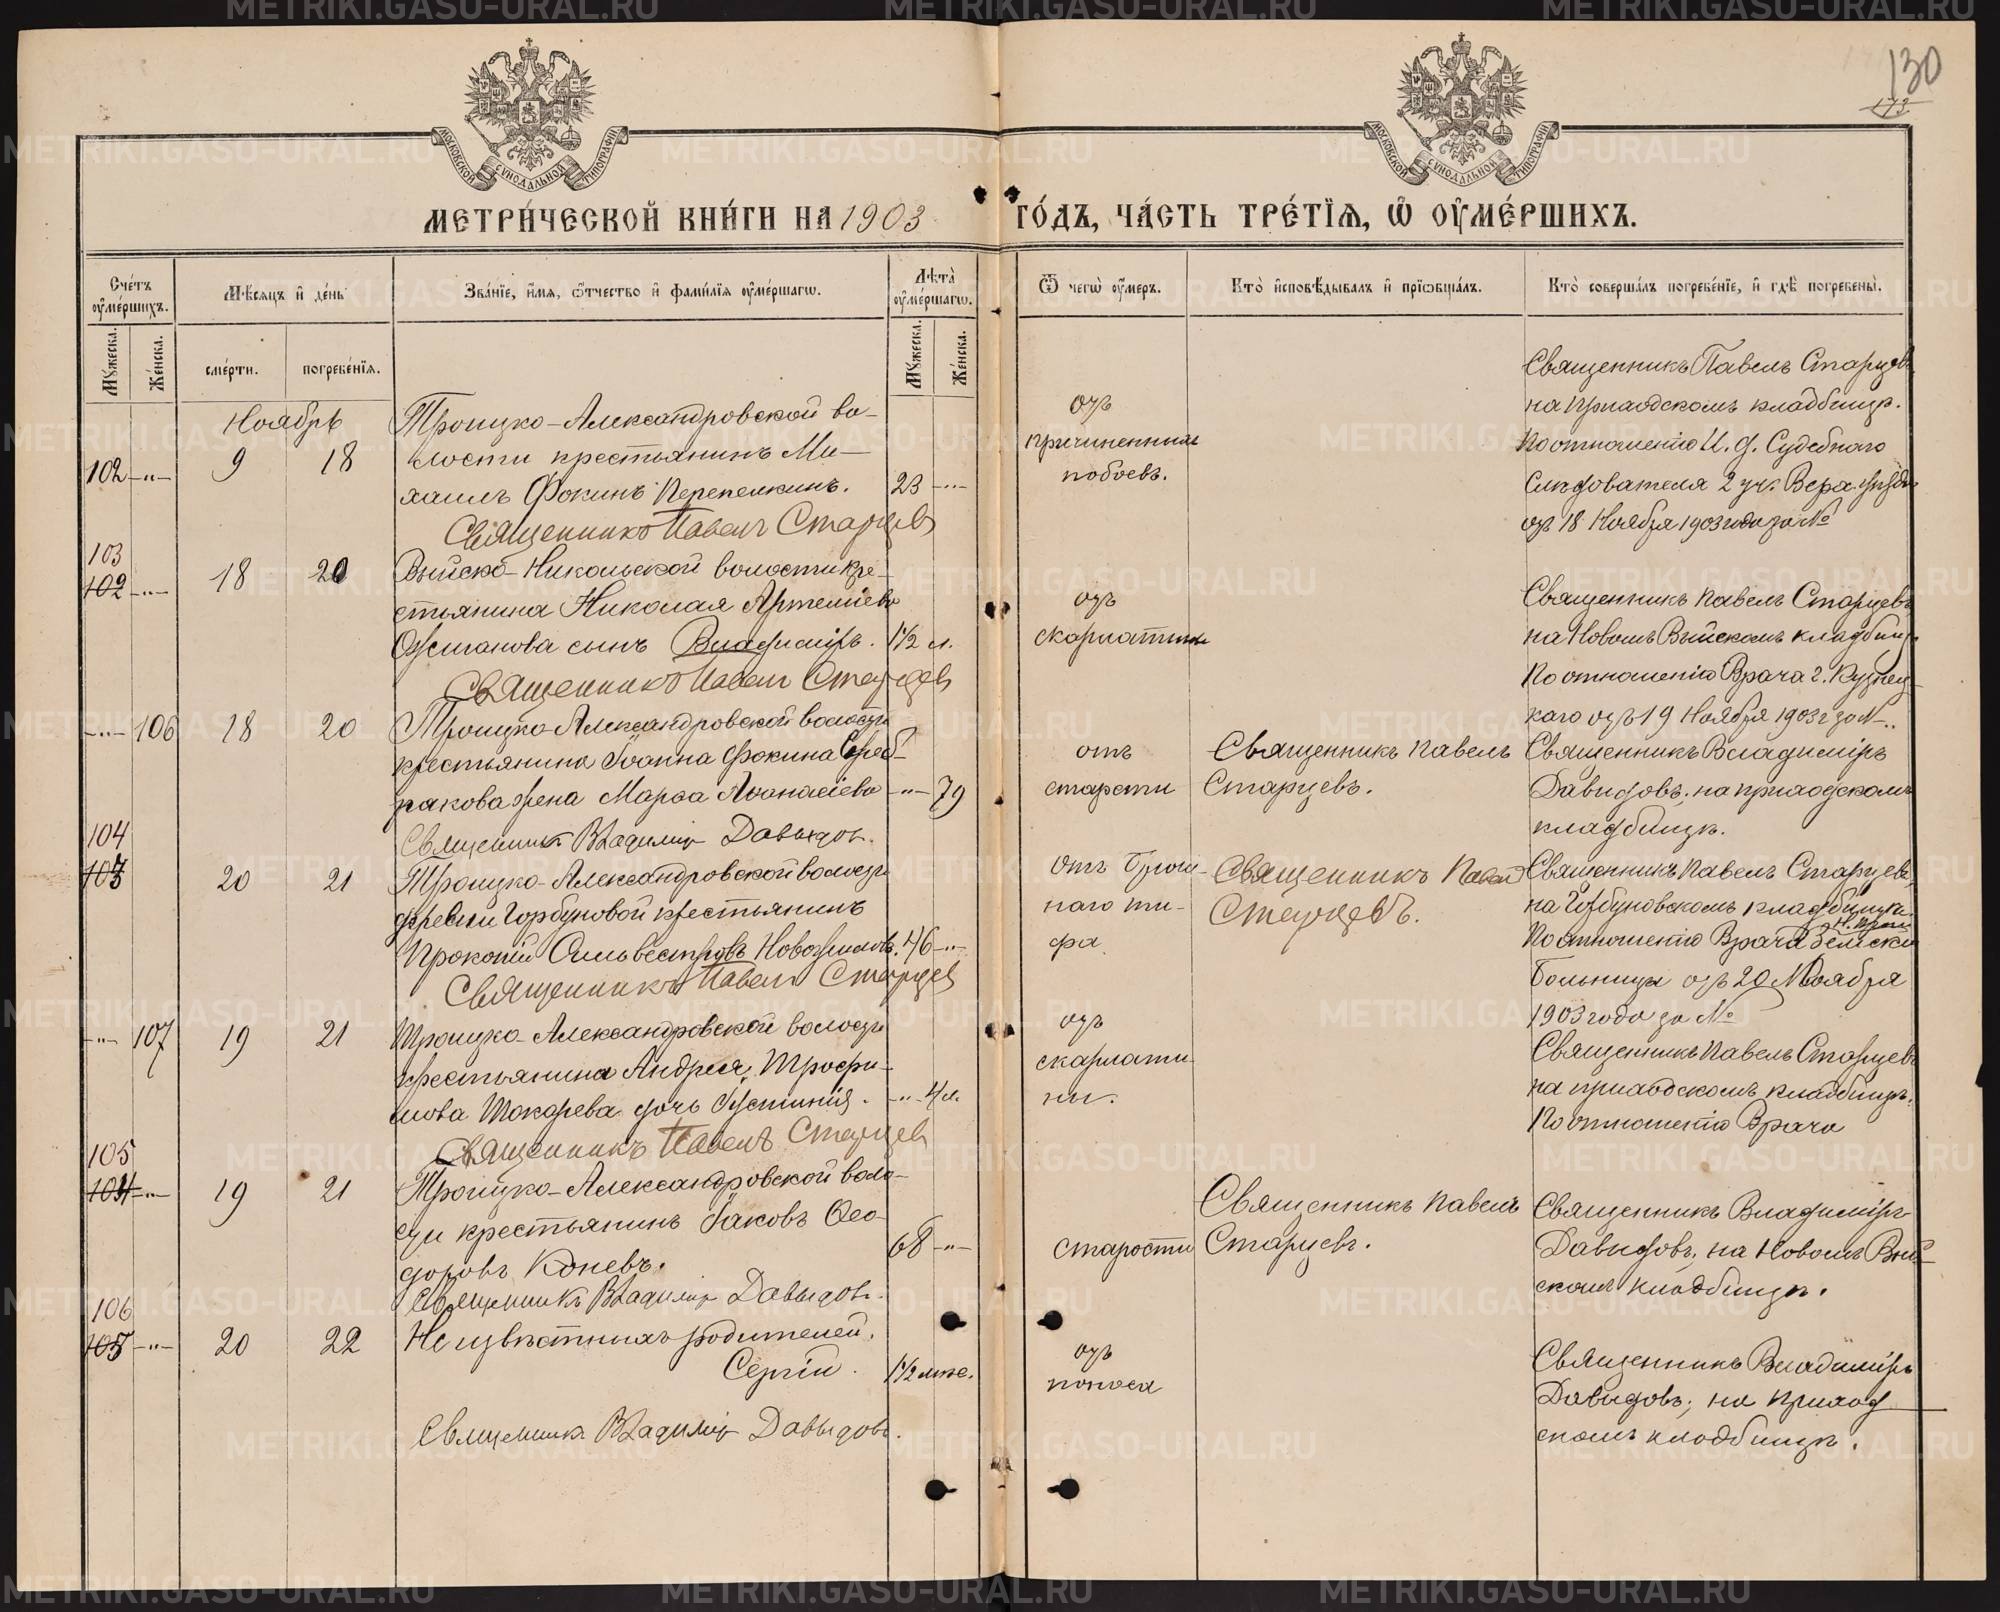 130
173
МОСКОВСКОЙ СУНОДАЛЬНОЙ ТИПОГРАФІИ
МОСКОВСКОЙ СУНОДАЛЬНОЙ ТИПОГРАФІИ
МЕТРИ́ЧЕСКОЙ КНИ́ГИ НА 1903 ГО́ДЪ, ЧА́СТЬ ТРЕ́ТІѦ, Ѡ ОУ҆МЕ́РШИХЪ.
Сче́тъ оу҆ме́ршихъ.
Мꙋ́жеска.
Же́нска.
Мѣ́сѧцъ и҆ де́нь
сме́рти.
погребе́нїѧ.
Зва́нїе, и҆́мѧ, ѻ҆́тчество и҆ фами́лїѧ оу҆ме́ршагѡ.
Лѣ́та оу҆ме́ршагѡ.
Мꙋ́жеска.
Же́нска.
Ѿ чегѡ̀ оу҆́меръ.
Кто̀ и҆сповѣ́дывалъ и҆ прїѡбща́лъ.
Кто̀ соверша́лъ погребе́нїе, и҆ гдѣ̀ погребены̀.
Ноябрь
102 —"— 9 18
Троицко-Александровской во-
лости крестьянинъ Ми-
хаилъ Фокинъ Перепелкинъ. 23 —"—
Священникъ Павелъ Старцев
отъ
причиненныхъ
побоевъ.
Священникъ Павелъ Старцевъ
на приходскомъ кладбищѣ.
По отношенію И. д. Судебнаго
Слѣдователя 2 уч. Верх. уѣзда
отъ 18 Ноября 1903 года за №
103
102 —"— 18 20
Выйско-Никольской волости кре-
стьянина Николая Артеміева
сынъ Владиміръ. 1½ л.
Священникъ Павелъ Старцев
отъ
скарлатины
Священникъ Павелъ Старцевъ
на Новомъ Выйскомъ кладбищѣ
По отношенію Врача г. Кузнец-
каго отъ 19 Ноября 1903 г за №
—"— 106 18 20
Троицко-Александровской волости
крестьянина Іоанна Фокина Сереб-
рякова жена Марѳа Аѳанасіева —"— 79
Священникъ Владиміръ Давыдов.
отъ
старости
Священникъ Павелъ
Старцевъ.
Священникъ Владиміръ
Давыдовъ, на приходскомъ
кладбищѣ.
104
103 20 21
Троицко-Александровской волости
деревни Горбуновой крестьянинъ
Прокопій Сильвестровъ Новожиловъ. 46 —"—
Священникъ Павелъ Старцев
Отъ брюш-
наго ти-
фа
Священникъ Павелъ
Старцевъ.
Священникъ Павелъ Старцевъ,
на Горбуновскомъ кладбищѣ.
По отношенію Врача Земской
Больницы отъ 20 Ноября
1903 года за №
—"— 107 19 21
Троицко-Александровской волости
крестьянина Андрея Трофи-
мова Токарева дочь Іустинія. —"— 4 л.
Священникъ Павелъ Старцев
отъ
скарлати-
ны.
Священникъ Павелъ Старцевъ
на приходскомъ кладбищѣ.
По отношенію Врача
105
104 —"— 19 21
Троицко-Александровской воло-
сти крестьянинъ Іаковъ Ѳео-
доровъ Коневъ. 68 —"—
Священникъ Владиміръ Давыдов.
старости
Священникъ Павелъ
Старцевъ.
Священникъ Владиміръ
Давыдовъ, на Новомъ Вый-
скомъ кладбищѣ.
106
105 —"— 20 22
Неизвѣстныхъ родителей.
Сергій. 1½ мѣс.
Священникъ Владиміръ Давыдовъ.
отъ
поноса
Священникъ Владиміръ
Давыдовъ, на приход
скомъ кладбищѣ.
METRIKI.GASO-URAL.RU